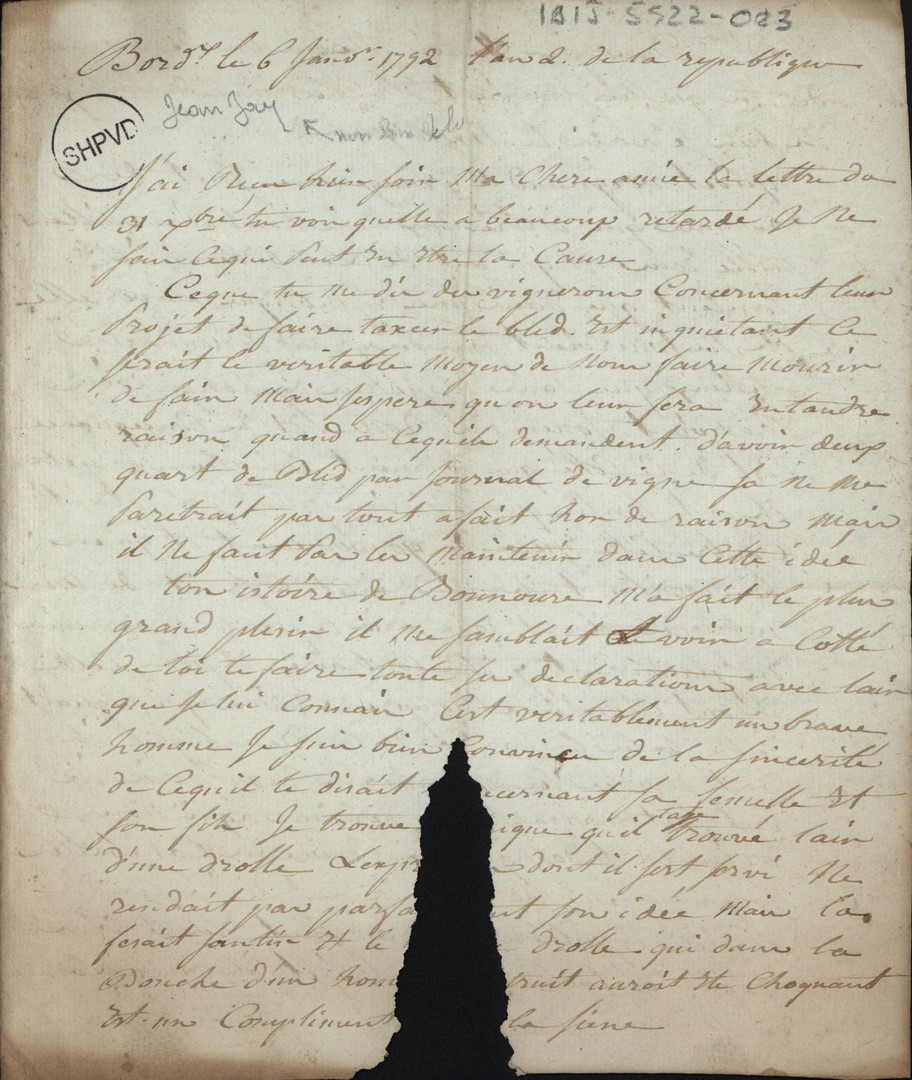 1B1J-5522-023
Bord.x le 6 Janv.er 1792 l'an 2. de la republique
SHPVD
Jean Jay
J'ai Reçu hier soir Ma Chere amie ta lettre du
31 xbre tu vois quelle a beaucoup retardé Je Ne
sais Cequi Peut En Etre la Cause
Ceque tu Me dis des vignerons Concernant leur
Projet de faire taxer le bled. Est inquietant Ce
serait le veritable Moyen de Nous faire Mourir
de faim Mais Jespere qu'on leur fera Entandre
raison quand a Cequils demandent. d'avoir deux
quart de Bled par Journal de vigne sa Ne Me
Paretrait pas tout afait hors de raison Mais
il Ne faut Pas les Maintenir dans Cette idée
ton istoire de Bounoure M'a fait le plus
grand plesir il Me samblait Le voir a Cotté
de toi te faire toute ses declarations avec lair
que Je lui Connais C'est veritablement un brave
homme Je suis bien Convincu de la sincerité
de Cequil te disait cernant sa femelle Et
son fils Je trouve ique qu'il taye trouvé lair
d'une drolle Lexp dont il sest servi Ne
rendait pas parfa nt son idée Mais la
ferait santir Et le drolle qui dans la
Bouche d'un hom truit auroit Ete Choquant
Est un Compliment la siene